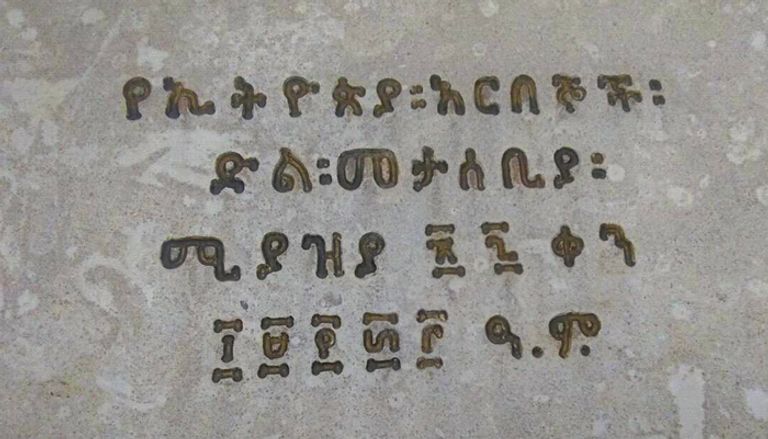 የኢትዮጵያ፡አርበኞች፡
ድል፡መታሰቢያ፡
ሚያዝያ ፳፯ ቀን
፲፱፻፴፫ ዓ.ም.